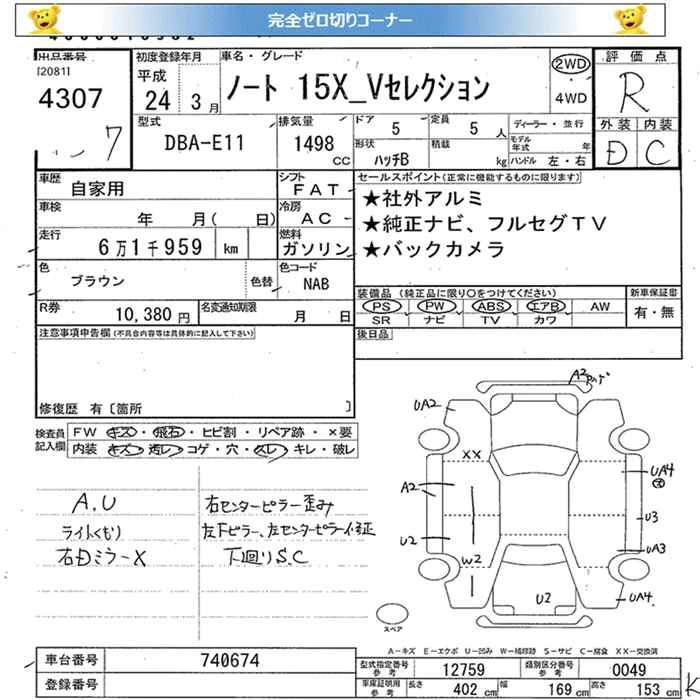 完全ゼロ切りコーナー
出品番号
[2081]
4307
7
初度登録年月
平成
24 3月
車名・グレード
ノート 15X_Vセレクション
2WD
4WD
評価点
R
外装 内装
D C
型式
DBA-E11
排気量
1498
CC
ドア
5
定員
5人
形状
ハッチB
積載
kg
ディーラー・並行
モデル年式 年
ハンドル 左・右
車歴
自家用
シフト
FAT
車検
年 月( 日)
冷房
AC
走行
6万1千959 km
燃料
ガソリン
色
ブラウン
色替
色コード
NAB
R券
10,380円
名変通知期限
月 日
セールスポイント(正常に機能するものに限ります)
★社外アルミ
★純正ナビ、フルセグTV
★バックカメラ
装備品 (純正品に限り○をつけてください)
新車保証書
PS PW ABS エアB AW
有・無
SR ナビ TV カワ
後日品
注意事項申告欄(不具合内容等は具体的に記入して下さい)
修復歴 有〔箇所 〕
検査員記入欄
FW キズ・飛石・ヒビ割・リペア跡・×要
内装 キズ・汚レ・コゲ・穴・スレ・キレ・破レ
A.U
ライトくもり
右Dミラー X
右センターピラー歪み
左下ピラー、左センターピラー修正
下回りS.C
A2
UA2
XX
A2
UA4
U3
U2
UA3
W2
U2
UA4
スペア
A-キズ E-エクボ U-凹み W-補修跡 S-サビ C-腐食 XX-交換済
車台番号
740674
登録番号
型式指定番号
参考
12759
類別区分番号
参考
0049
車庫証明用
参考
長さ 402 cm
幅 169 cm
高さ 153 cm